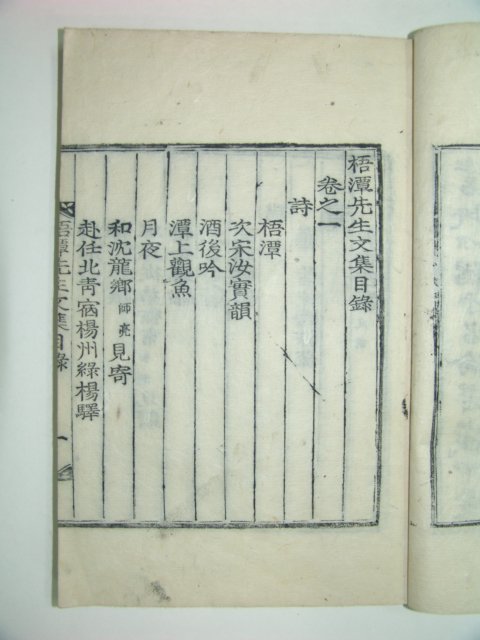 梧潭先生文集目錄
卷之一
詩
梧潭
次宋汝實韻
酒後吟
潭上觀魚
月夜
和沈龍鄉師亮見寄
赴任北青宿楊州綠楊驛
梧潭先生文集目錄 一